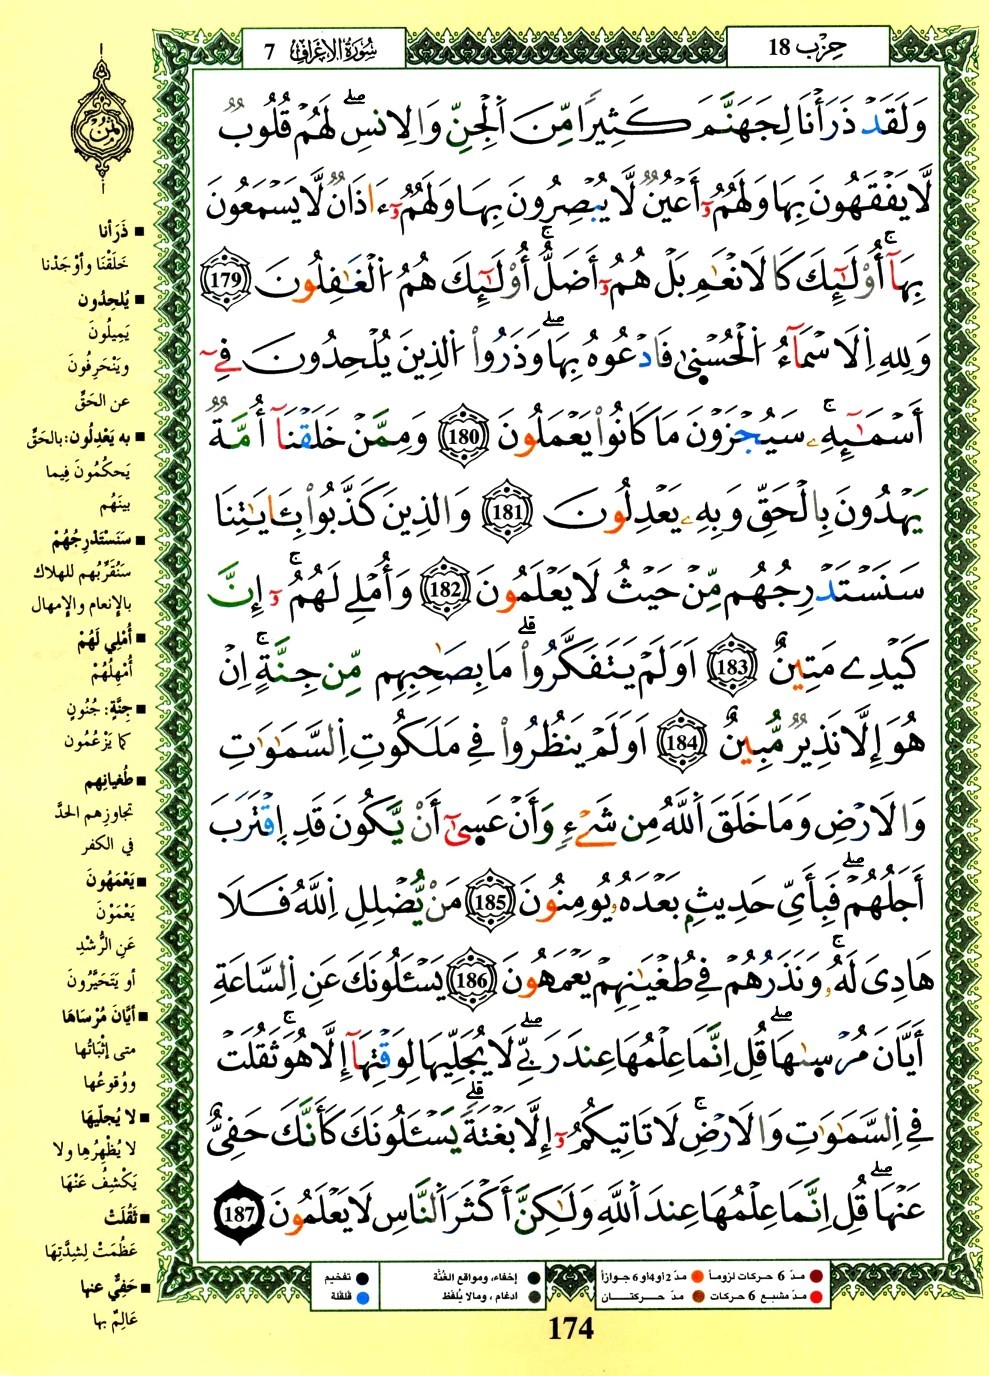 حِزْب 18
سُورَةُ الاَعْرَافِ 7
وَلَقَدْ ذَرَأْنَا لِجَهَنَّمَ كَثِيراً مِّنَ اَ۬لْجِنِّ وَالِانسِ لَهُمْ قُلُوبٌ
لَّا يَفْقَهُونَ بِهَا وَلَهُمُۥٓ أَعْيُنٌ لَّا يُبْصِرُونَ بِهَا وَلَهُمُۥٓ ءَاذَانٌ لَّا يَسْمَعُونَ
بِهَآ أُوْلَٰٓئِكَ كَالَانْعَٰمِ بَلْ هُمُۥٓ أَضَلُّ أُوْلَٰٓئِكَ هُمُ اُ۬لْغَٰفِلُونَ 179
وَلِلهِ اِ۬لَاسْمَآءُ اُ۬لْحُسْنۭيٰ فَادْعُوهُ بِهَا وَذَرُواْ اُ۬لذِينَ يُلْحِدُونَ فِےٓ
أَسْمَٰٓئِهِۦ سَيُجْزَوْنَ مَا كَانُواْ يَعْمَلُونَ 180 وَمِمَّنْ خَلَقْنَآ أُمَّةٌ
يَهْدُونَ بِالْحَقِّ وَبِهِۦ يَعْدِلُونَ 181 وَالذِينَ كَذَّبُواْ بِـَٔايَٰتِنَا
سَنَسْتَدْرِجُهُم مِّنْ حَيْثُ لَا يَعْلَمُونَ 182 وَأُمْلِے لَهُمُۥٓ إِنَّ
كَيْدِے مَتِينٌ 183 اَوَلَمْ يَتَفَكَّرُواْ مَا بِصَٰحِبِهِم مِّن جِنَّةٍ اِنْ
هُوَ إِلَّا نَذِيرٌ مُّبِينٌ 184 اَوَلَمْ يَنظُرُواْ فِے مَلَكُوتِ اِ۬لسَّمَٰوَٰتِ
وَالَارْضِ وَمَا خَلَقَ اَ۬للَّهُ مِن شَےْءٍ وَأَنْ عَسۭيٰٓ أَنْ يَّكُونَ قَدِ اِ۪قْتَرَبَ
أَجَلُهُمْ فَبِأَيِّ حَدِيثِۢ بَعْدَهُۥ يُومِنُونَ 185 مَنْ يُّضْلِلِ اِ۬للَّهُ فَلَا
هَادِيَ لَهُۥ وَنَذَرُهُمْ فِے طُغْيَٰنِهِمْ يَعْمَهُونَ 186 يَسْـَٔلُونَكَ عَنِ اِ۬لسَّاعَةِ
أَيَّانَ مُرْسۭيٰهَا قُلِ اِنَّمَا عِلْمُهَا عِندَ رَبِّے لَا يُجَلِّيهَا لِوَقْتِهَآ إِلَّا هُوَ ثَقُلَتْ
فِے اِ۬لسَّمَٰوَٰتِ وَالَارْضِ لَا تَاتِيكُمُۥٓ إِلَّا بَغْتَةً يَسْـَٔلُونَكَ كَأَنَّكَ حَفِيٌّ
عَنْهَا قُلِ اِنَّمَا عِلْمُهَا عِندَ اَ۬للَّهِ وَلَٰكِنَّ أَكْثَرَ اَ۬لنَّاسِ لَا يَعْلَمُونَ 187
ذَرَأنا
خَلَقْنَا وأوْجَدْنا
يُلحِدُون
يَمِيلُونَ
ويَنْحَرِفُونَ
عن الحَقِّ
به يَعْدِلُون: بالحَقِّ
يَحكُمُونَ فِيما
بينَهُم
سَنَسْتَدْرِجُهُمْ
سَنُقَرِّبُهم للهلاك
بالإنعام والإمهال
أُمْلِي لَهُمْ
أُمْهِلُهُمْ
جِنَّةٍ: جُنُونٍ
كما يَزْعُمُون
طُغيانِهم
تجاوزِهم الحدَّ
في الكفر
يَعْمَهُونَ
يَعْمَوْنَ
عَنِ الرُّشْدِ
أو يَتَحَيَّرُونَ
أيَّانَ مُرْسَاهَا
متى إثْبَاتُها
ووُقوعُها
لا يُجلّيهَا
لا يُظْهِرُها ولا
يَكْشِفُ عَنْهَا
ثَقُلَتْ
عَظُمَتْ لِشِدَّتِهَا
حَفِيٌّ عنها
عَالِمٌ بها
مدّ 6 حركات لزوماً
مدّ 2 أو 4 أو 6 جوازاً
مدّ مشبع 6 حركات
مدّ حـركتــان
إخفاء، ومواقع الغُنَّة
ادغام ، ومالا يُلفَظ
تفخيم
قلقلة
174